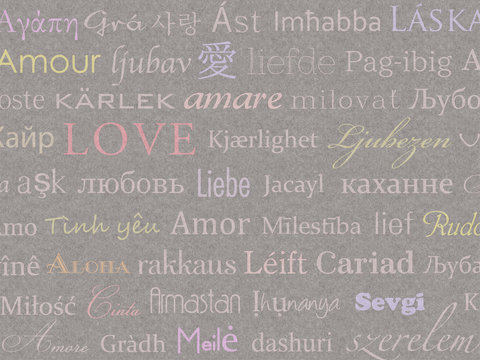 Αγάπη Grá 사랑 Ást Imħabba LÁSKA
Amour ljubav 愛 liefde Pag-ibig
KÄRLEK amare milovať
Хайр LOVE Kjærlighet Ljubezen
aşk любовь Liebe Jacayl каханне
Tình yêu Amor Mīlestība lief
ALOHA rakkaus Léift Cariad
Miłość Cinta Armastan Ịhụnanya Sevgi
Amore Gràdh Meilė dashuri szerelem